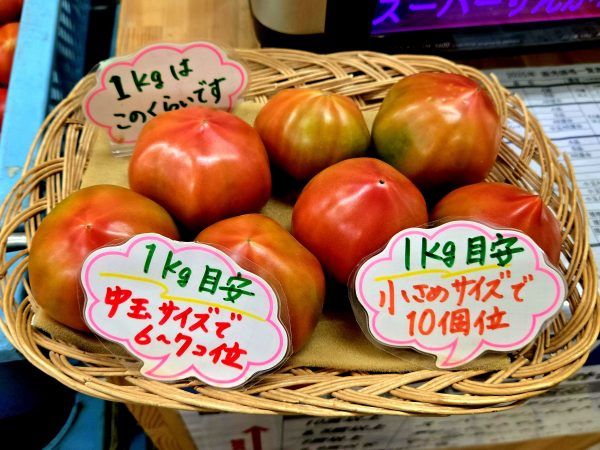 スーパーりんか
1kgは
このくらいです
1kg目安
中玉サイズで
6〜7コ位
1kg目安
小さめサイズで
10個位